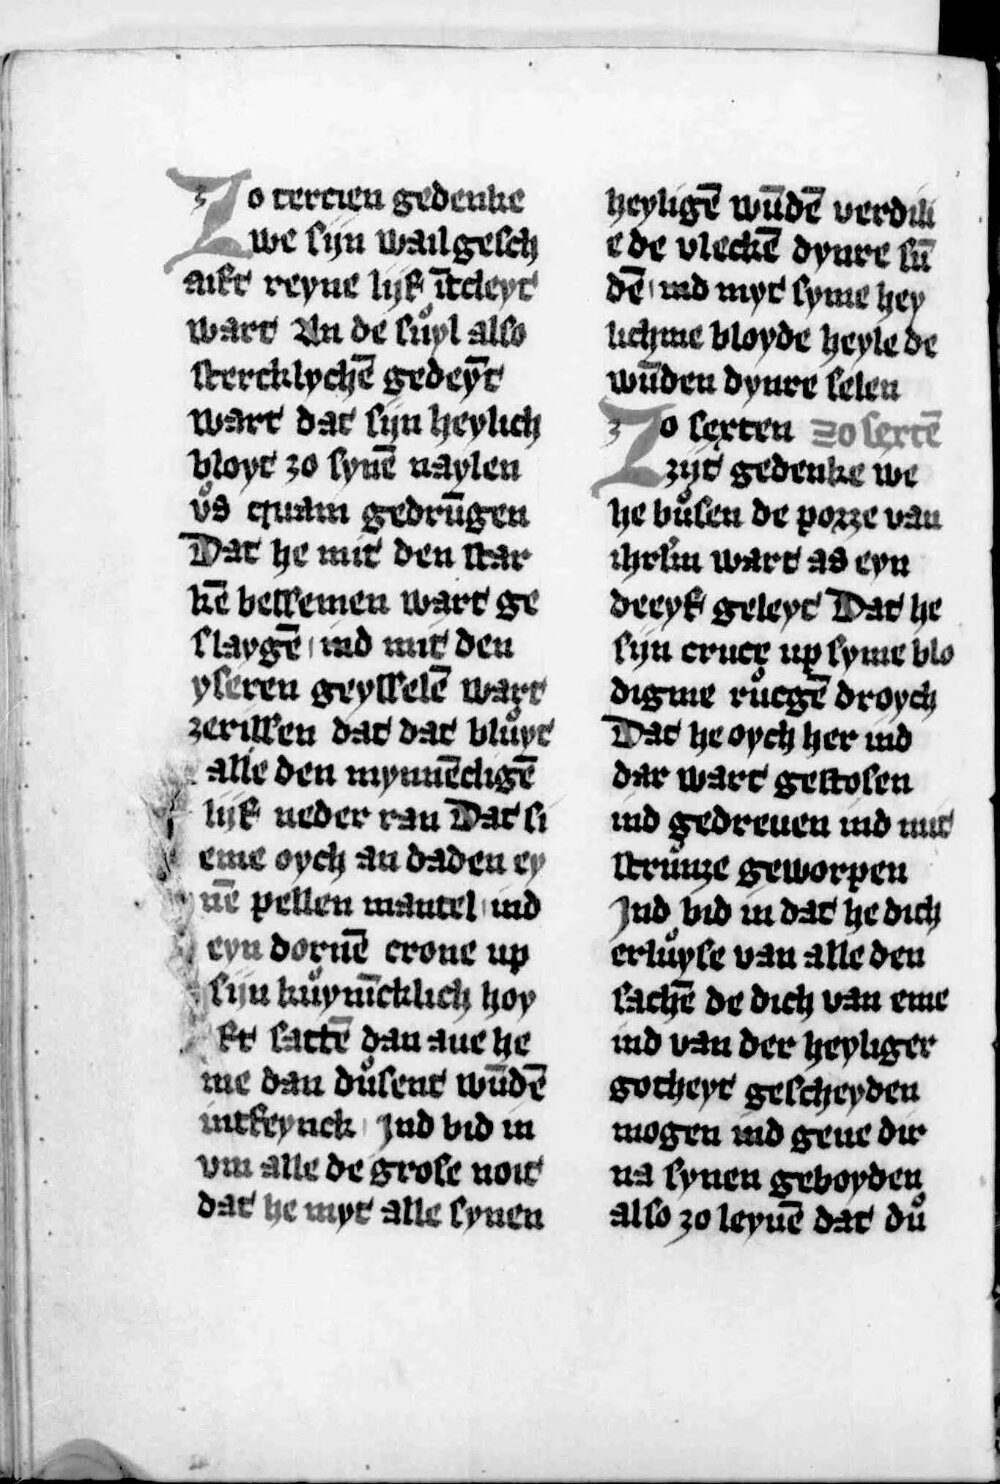 Zo tercien gedenke
we sijn wail gesch
aift reyne lijf ītcleyt
wart An de suͦyl also
stercklychē gedeȳt
wart dat sijn heylich
bloyt zo synē naylen
uͦs quam gedrūgen
Dat he mit den star
kē bessemen wart ge
slaygē ind mit den
yseren geysselē wart
zerissen dat dat bluͦyt
alle den mynnēcligē
lijf neder ran Dat si
eme oych an daden ey
nē pellen mantel ind
eyn dornē crone up
sijn kuͦynīcklich hoy
ft sattē dan aue he
me dan duͦsent wūdē
intfeynck Ind bid in
vm alle de grose noit
dat he myt alle synen
heyligē wūdē verdili
e de vleckē dynre sū
dē ind myt syme hey
lichme bloyde heyle de
wūden dynre selen
Zo sexten Zo sextē
zijt gedenke we
he buͦsen de porze van
ihrl̄m wart as eyn
deeyf geleyt Dat he
sijn cruce up syme blo
digme ruͦcgē droych
Dat he oych her ind
dar wart gestosen
ind gedreuen ind mit
struͦnze geworpen
Ind bid in dat he dich
erluͦyse van alle den
sachē de dich van eme
ind van der heyliger
gotheyt gescheyden
mogen ind geue dir
na synen geboyden
also zo leyuē dat duͦ